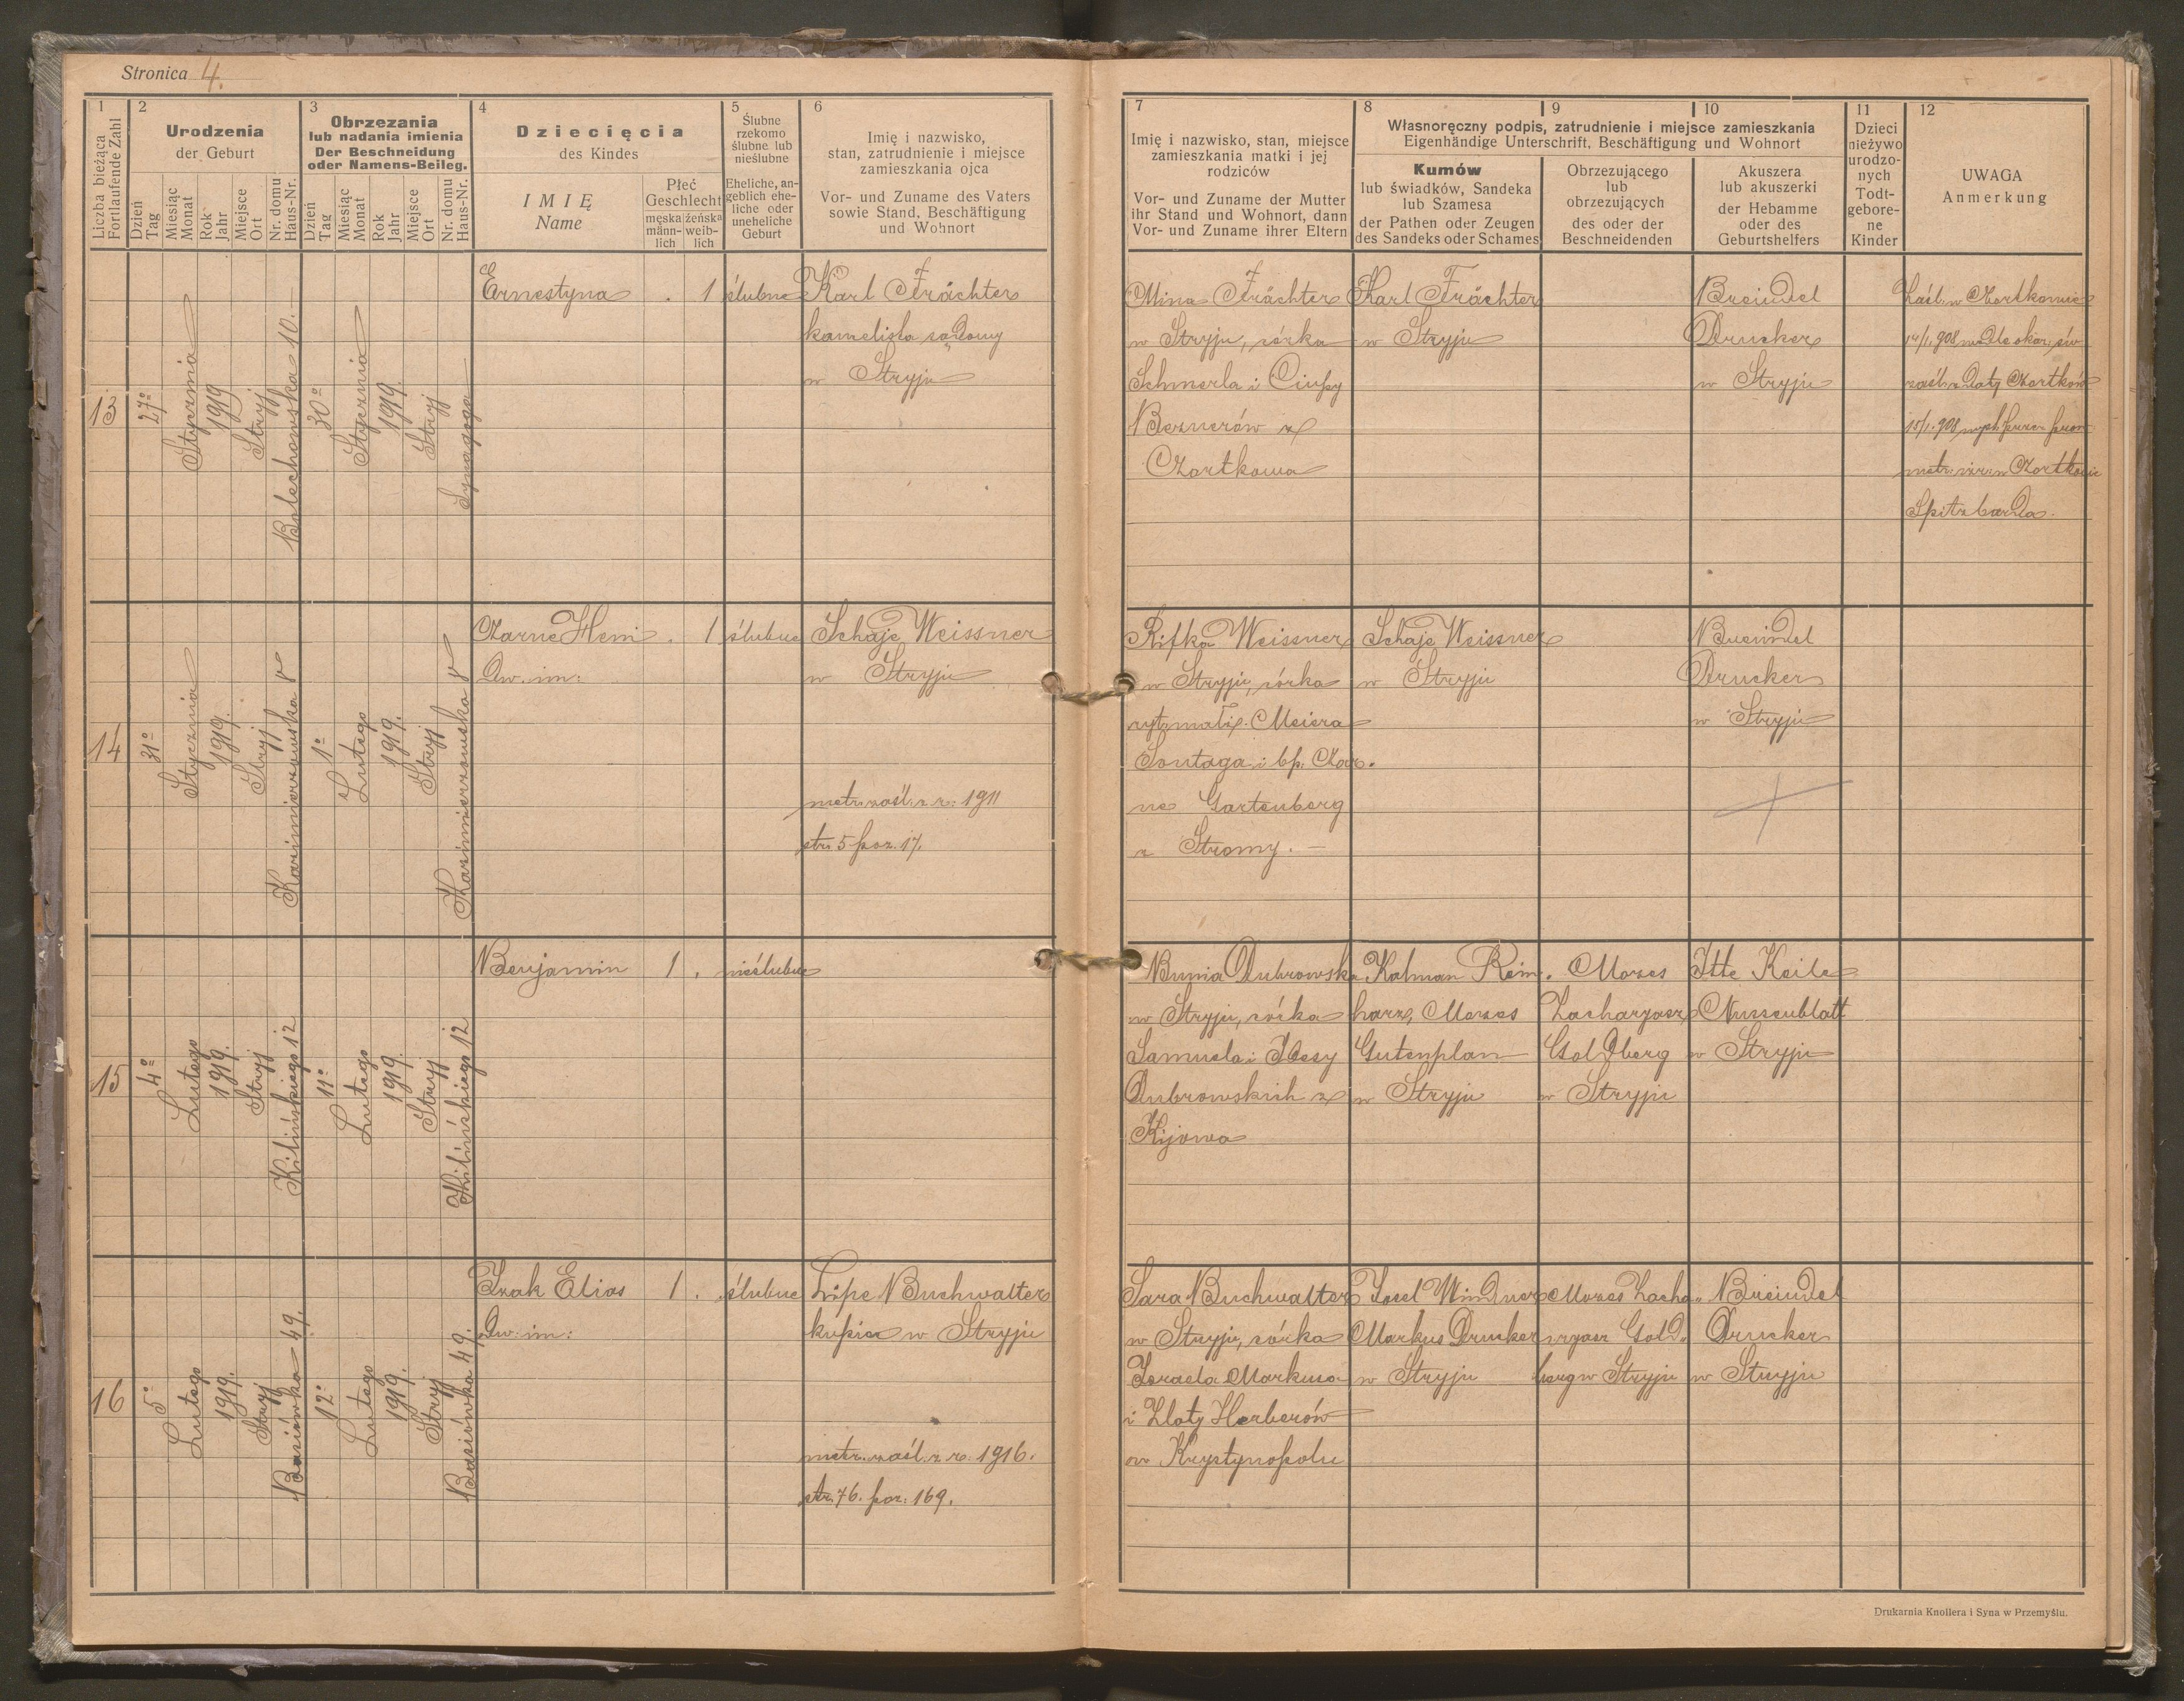 Stronica 4.
1
Liczba bieżąca
Fortlaufende Zahl
2
Urodzenia
der Geburt
Dzień
Tag
Miesiąc
Monat
Rok
Jahr
Miejsce
Ort
Nr. domu
Haus-Nr.
3
Obrzezania
lub nadania imienia
Der Beschneidung
oder Namens-Beileg.
Dzień
Tag
Miesiąc
Monat
Rok
Jahr
Miejsce
Ort
Nr. domu
Haus-Nr.
4
Dziecięcia
des Kindes
IMIĘ
Name
Płeć
Geschlecht
męska
männ-
lich
żeńska
weib-
lich
5
Ślubne
rzekomo
ślubne lub
nieślubne
Eheliche, an-
geblich ehe-
liche oder
uneheliche
Geburt
6
Imię i nazwisko,
stan, zatrudnienie i miejsce
zamieszkania ojca
Vor- und Zuname des Vaters
sowie Stand, Beschäftigung
und Wohnort
7
Imię i nazwisko, stan, miejsce
zamieszkania matki i jej
rodziców
Vor- und Zuname der Mutter
ihr Stand und Wohnort, dann
Vor- und Zuname ihrer Eltern
8
9
10
Własnoręczny podpis, zatrudnienie i miejsce zamieszkania
Eigenhändige Unterschrift, Beschäftigung und Wohnort
Kumów
lub świadków, Sandeka
lub Szamesa
der Pathen oder Zeugen
des Sandeks oder Schames
Obrzezującego
lub
obrzezujących
des oder der
Beschneidenden
Akuszera
lub akuszerki
der Hebamme
oder des
Geburtshelfers
11
Dzieci
nieżywo
urodzo-
nych
Todt-
gebore-
ne
Kinder
12
UWAGA
Anmerkung
13
27º
Stycznia
1919
Stryj
Bolechowska 10.—
30º
Stycznia
1919.
Stryj
Synagoga
Ernestyna
. 1
ślubne
Karl Frächter
kancelista sądowy
w Stryju
Mina Frächter
w Stryju, córka
Schmerla i
Beznerów z
Czortkowa
Karl Frächter
w Stryju
Breindel
Drucker
w Stryju
Zaśl. w Czortkowie
14/1. 908
zaśl. z daty Czortków
15/1. 908
metr. izr. w Czortkowie
14
31º
Stycznia
1919.
Stryj
Kazimierzowska 8
1º
Lutego
1919.
Stryj
Kazimierzowska 8
Czarne Heni
Dw. im:
. 1
ślubne
Schaje Weissner
w Stryju
metr. zaśl. z r. 1911
str. 5 poz. 17.
Rifka Weissner
w Stryju, córka
Meiera
Sontaga i bp. Czar.
ne Gartenberg
z Stromy.—
Schaje Weissner
w Stryju
Breindel
Drucker
w Stryju
15
4º
Lutego
1919.
Stryj
Kilińskiego 12
11º
Lutego
1919.
Stryj
Kilińskiego 12
Benjamin
1 .
nieślubne
Bunia Dubrowska
w Stryju, córka
Samuela i
Dubrowskich z
Kijowa
Kalman Rein.
harz, Mozes
Gutenplan
w Stryju
Mozes
Zacharyasz
Goldberg
w Stryju
Itte Keile
Nussenblatt
w Stryju
16
5º
Lutego
1919.
Stryj
Basiówka 49.
12º
Lutego
1919.
Stryj
Basiówka 49.
Izak Elias
Dw: im:
1 .
ślubne
Lipe Buchwalter
kupiec w Stryju
metr. zaśl. z r. 1916.
str. 76. poz: 169.
Sara Buchwalter
w Stryju, córka
Izraela Markusa
i Zloty Herberów
w Krystynopolu
Josel Windner
Markus Drucker
w Stryju
Mozes Zacha„
ryasz Gold„
berg w Stryju
Breindel
Drucker
w Stryju
Drukarnia Knollera i Syna w Przemyślu.